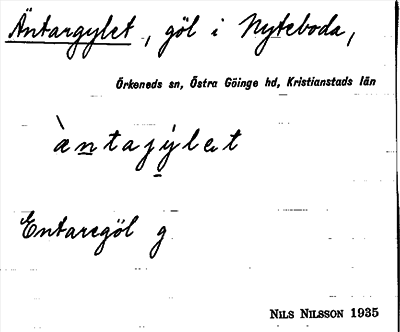 Äntargylet, göl i Nyteboda,
Örkeneds sn, Östra Göinge hd, Kristianstads län
àntajýlet
Entaregöl g
NILS NILSSON 1935